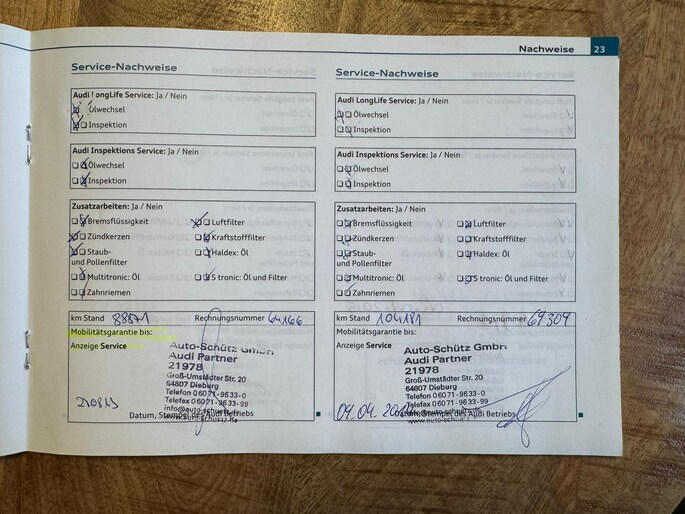 Nachweise 23
Service-Nachweise
Audi LongLife Service: Ja / Nein
Ölwechsel
Inspektion
Audi Inspektions Service: Ja / Nein
Ölwechsel
Inspektion
Zusatzarbeiten: Ja / Nein
Bremsflüssigkeit
Luftfilter
Zündkerzen
Kraftstofffilter
Staub-
und Pollenfilter
Haldex: Öl
Multitronic: Öl
S tronic: Öl und Filter
Zahnriemen
km Stand 88571 Rechnungsnummer 64166
Mobilitätsgarantie bis:
Anzeige Service
Auto-Schütz GmbH
Audi Partner
21978
Groß-Umstädter Str. 20
64807 Dieburg
Telefon 06071-9633-0
Telefax 06071-9633-99
Datum, Stempel des Audi Betriebs
Service-Nachweise
Audi LongLife Service: Ja / Nein
Ölwechsel
Inspektion
Audi Inspektions Service: Ja / Nein
Ölwechsel
Inspektion
Zusatzarbeiten: Ja / Nein
Bremsflüssigkeit
Luftfilter
Zündkerzen
Kraftstofffilter
Staub-
und Pollenfilter
Haldex: Öl
Multitronic: Öl
S tronic: Öl und Filter
Zahnriemen
km Stand 104181 Rechnungsnummer 69309
Mobilitätsgarantie bis:
Anzeige Service
Auto-Schütz GmbH
Audi Partner
21978
Groß-Umstädter Str. 20
64807 Dieburg
Telefon 06071-9633-0
Telefax 06071-9633-99
09.04.
Datum, Stempel des Audi Betriebs